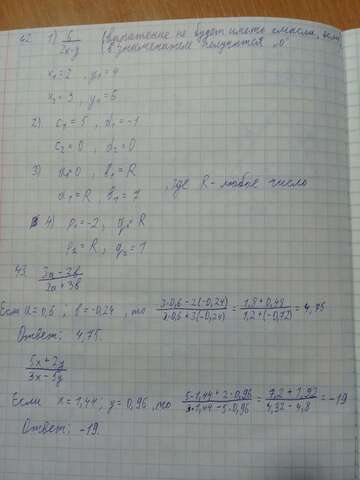 42 1) 6/(2x-y) (выражение не будет иметь смысла, если
в знаменателе получится „0“
x₁=2 , y₁=4
x₂=3 , y₂=6
2) c₁=5 , d₁=-1
c₂=0 , d₂=0
3) a=0 , b₁=R
a₁=R , b₁=7 , где R - любое число
4) p₁=-2 , q=R
p₂=R , q₂=1
43 (3a-2b)/(2a+3b)
Если a=0,6 ; b=-0,24 , то (3·0,6-2(-0,24))/(2·0,6+3(-0,24)) = (1,8+0,48)/(1,2+(-0,72)) = 4,75
Ответ: 4,75.
(5x+2y)/(3x-5y)
Если x=1,44 ; y=0,96 , то (5·1,44+2·0,96)/(3·1,44-5·0,96) = (7,2+1,92)/(4,32-4,8) = -19
Ответ: -19.